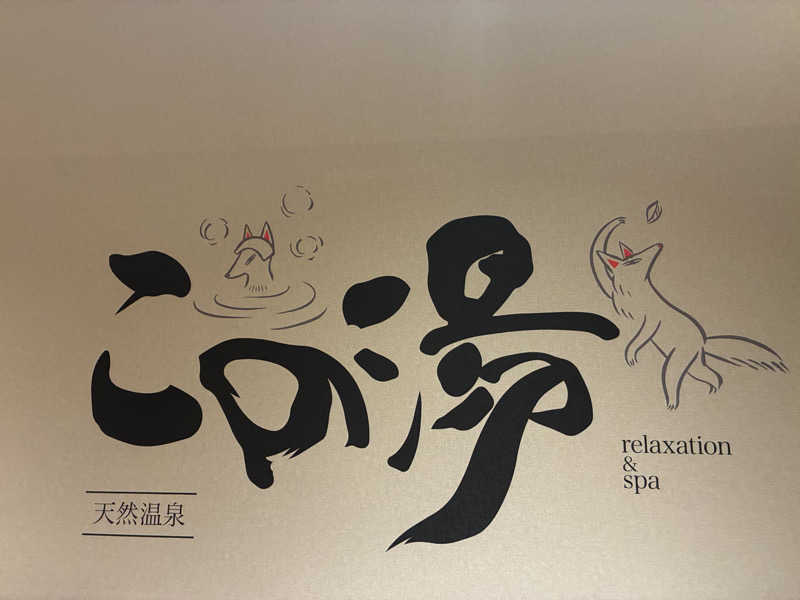 この湯
天然温泉
relaxation
&
spa